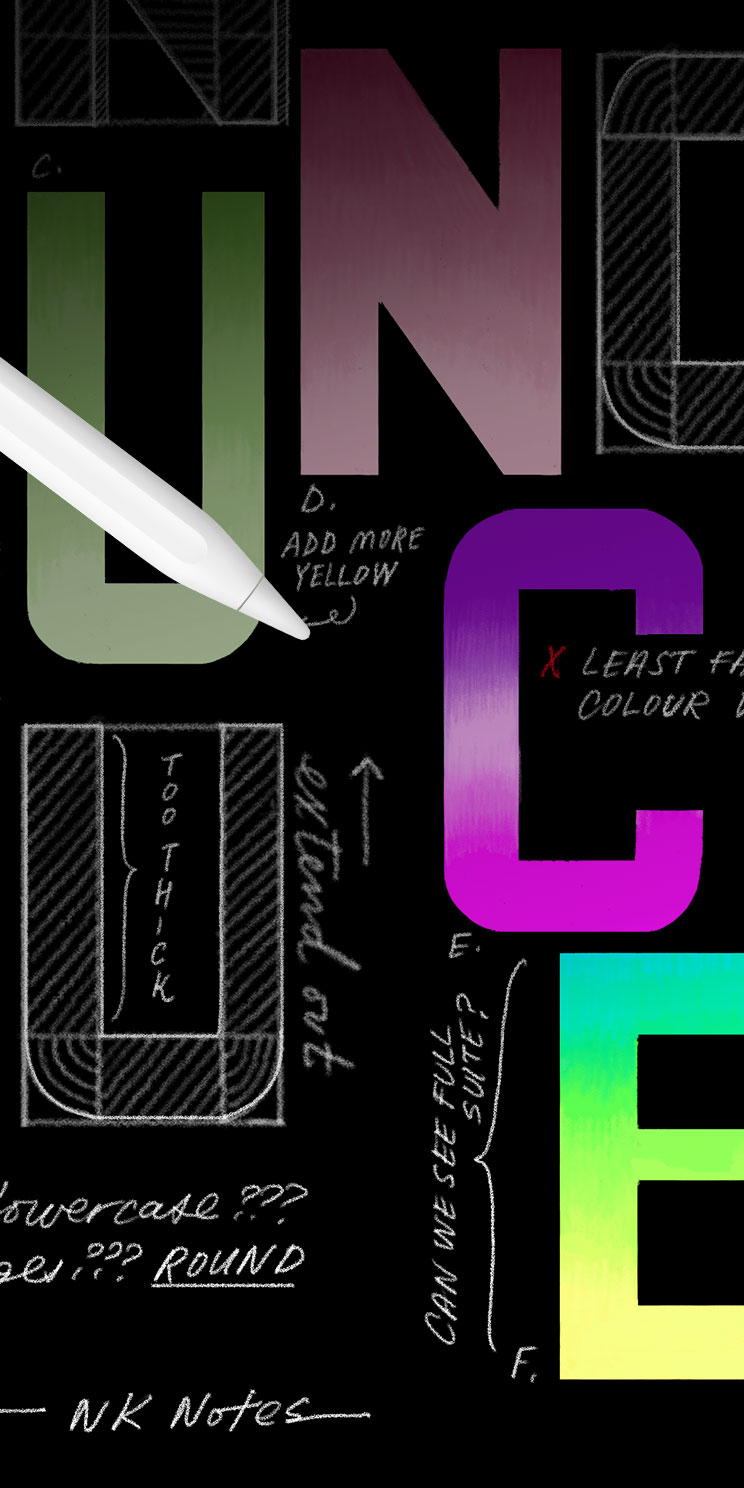 C.
U
N
D.
ADD MORE
YELLOW
C
X LEAST FA
COLOUR
TOO THICK
extend out
E.
CAN WE SEE FULL
SUITE?
E
F.
lowercase ???
ges ??? ROUND
— NK Notes